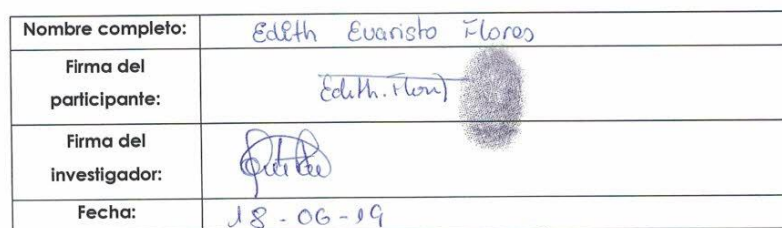 Nombre completo: Edith Evaristo Flores
Firma del
participante: Edith.Flores
Firma del
investigador:
Fecha: 18-06-19